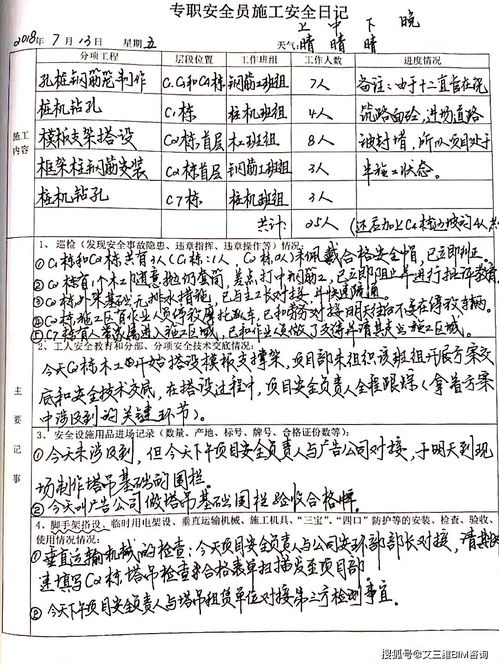 专职安全员施工安全日记
上 中 下 晚
2018年 7月 13日 星期五 天气: 晴 晴 晴
分项工程 层段位置 工作班组 工作人数 进度情况
孔桩钢筋笼制作 钢筋工班组 7人 备注:由于十二直在浇
桩机钻孔 C1栋 桩机班组 4人 筑路面砼,进场道路
模板支架搭设 C2栋首层 木工班组 8人 被封堵,所以项目处于
框架柱钢筋安装 C2栋首层 钢筋工班组 3人 半施工状态。
桩机钻孔 C7栋 桩机班组 3人
共计 25人
施工内容
1、巡检(发现安全事故隐患、违章指挥、违章操作等)情况:
①C1栋和C2栋共有3人(C1栋:1人、C2栋:2人)未佩戴合格安全帽,已立即纠正。
②C2栋有1个木工随意抛扔套筒,差点打中钢筋工,已立即阻止并进行批评教育
③C2栋外架基础无排水措施,已与主工长对接,并快速疏通。
④C2栋施工区有作业人员停放摩托车,已和劳务对接明天往后不要在停放车辆。
⑤C7栋有人带家属进入施工区域,已和作业员做了交待并请其出施工区域。
2、工人安全教育和分部、分项安全技术交底情况:
今天C2栋木工开始搭设模板支撑架,项目部未组织该班组开展方案交
底和安全技术交底,在搭设过程中,项目安全负责人全程跟踪(拿着方案
中涉及到的关键环节)。
主要记事
3、安全设施用品进场记录(数量、产地、标号、牌号、合格证份数等):
①今天未涉及到,但今天下午项目安全负责人与广告公司对接,于明天到现
场制作塔吊基础的围栏。
②今天叫广告公司做塔吊基础围栏验收合格牌。
4、脚手架搭设、临时用电架设、垂直运输机械、施工机具、"三宝"、"四口"防护等的安装、检查、验收、
使用情况情况:
①垂直运输机械的检查:今天项目安全负责人与公司安环部部长对接,请其快
速填写C2栋塔吊检查合格表单扫描发至项目部
②今天下午项目安全负责人与塔吊租赁单位对接第三方检测事宜。
搜狐号@艾三维BIM咨询